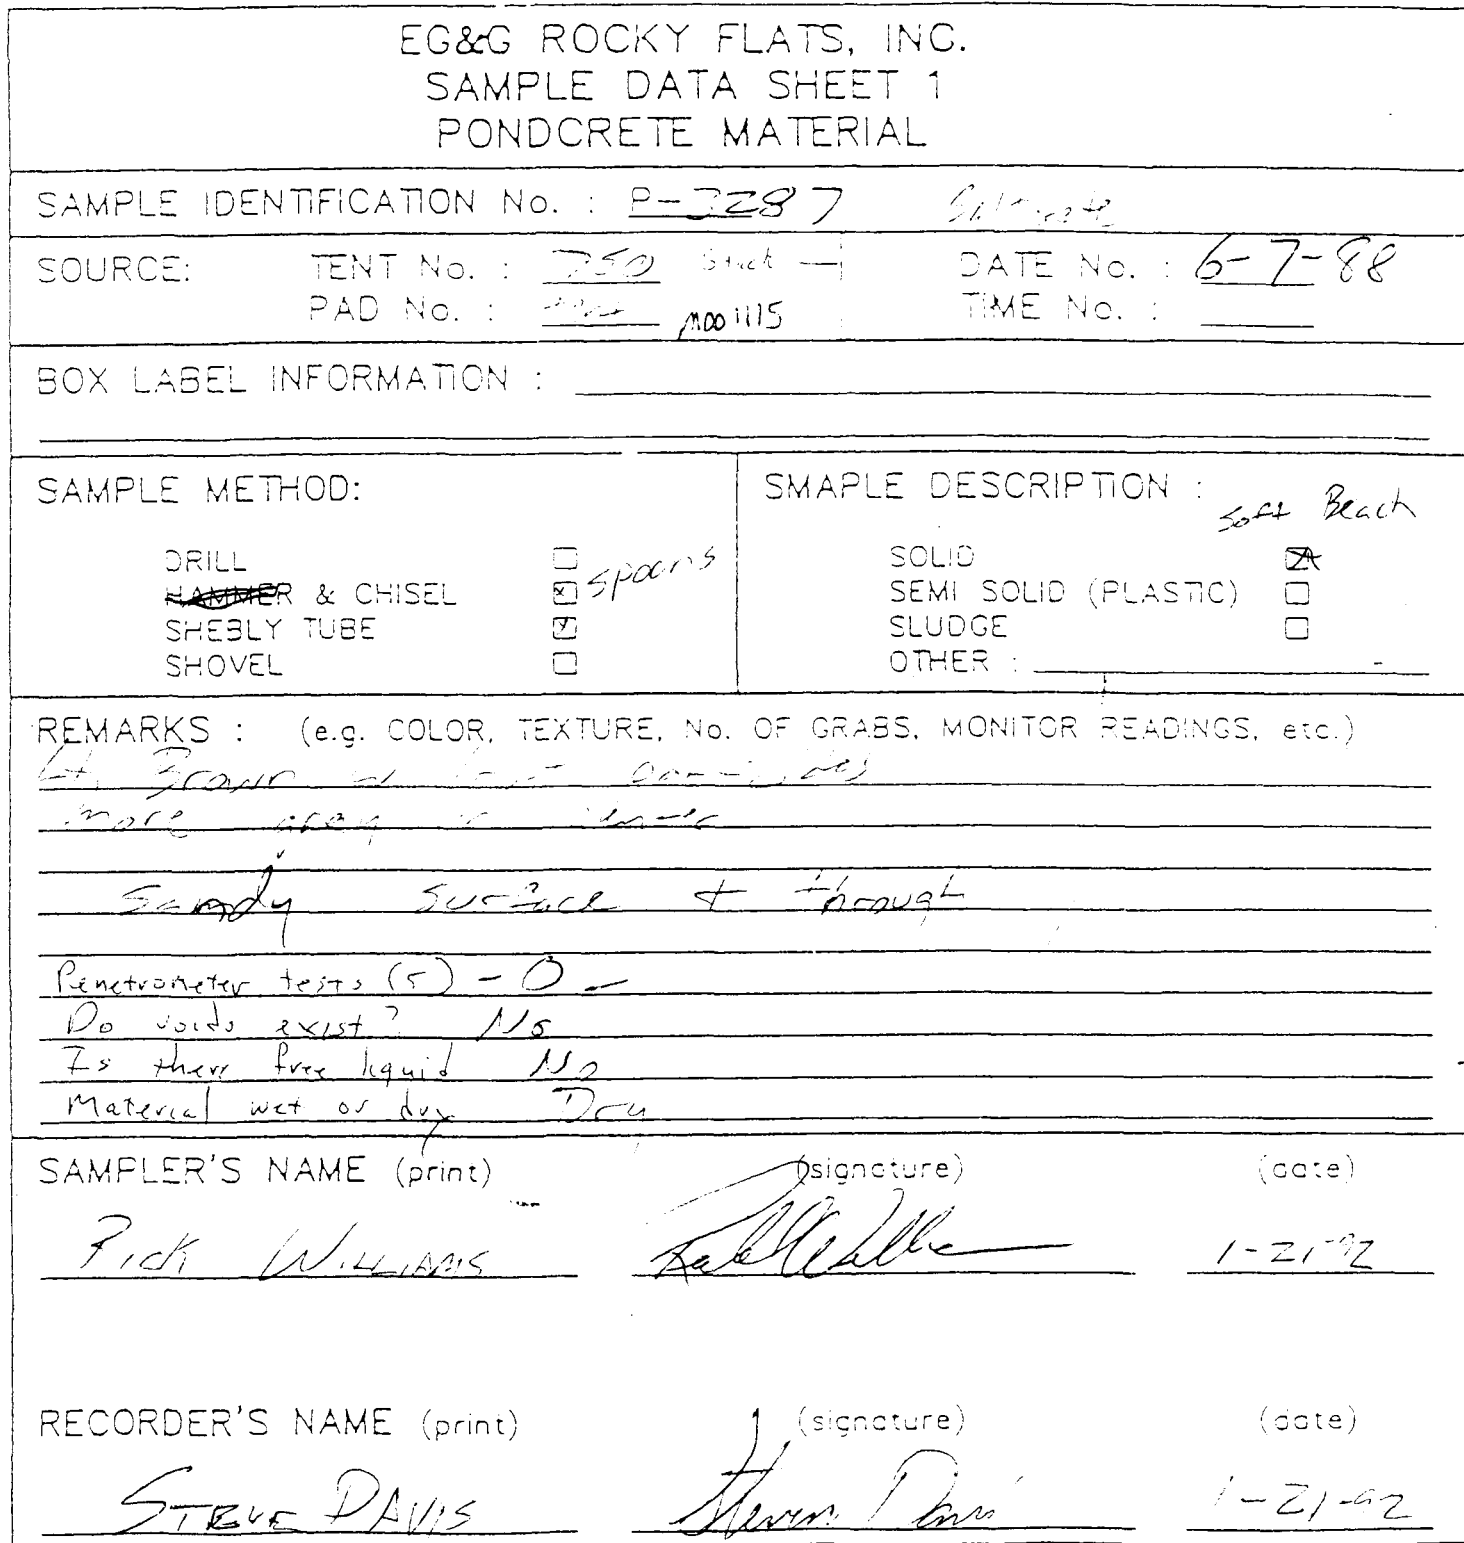 EG&G ROCKY FLATS, INC.
SAMPLE DATA SHEET 1
PONDCRETE MATERIAL
SAMPLE IDENTIFICATION No. : P-3287 Saltcrete
SOURCE: TENT No. : 750 DATE No. : 6-7-88
PAD No. : M001115 TIME No. :
BOX LABEL INFORMATION :
SAMPLE METHOD:
DRILL
HAMMER & CHISEL spoons
SHEBLY TUBE
SHOVEL
SMAPLE DESCRIPTION :
Soft Beach
SOLID
SEMI SOLID (PLASTIC)
SLUDGE
OTHER :
REMARKS : (e.g. COLOR, TEXTURE, No. OF GRABS, MONITOR READINGS, etc.)
Lt. Brown w
more grey
Sandy surface + through
Penetrometer tests (5) - 0 -
Do voids exist? No
Is there free liquid No
Material wet or dry Dry
SAMPLER'S NAME (print) (signature) (date)
Rick Williams 1-21-92
RECORDER'S NAME (print) (signature) (date)
STEVE DAVIS Steven Davis 1-21-92